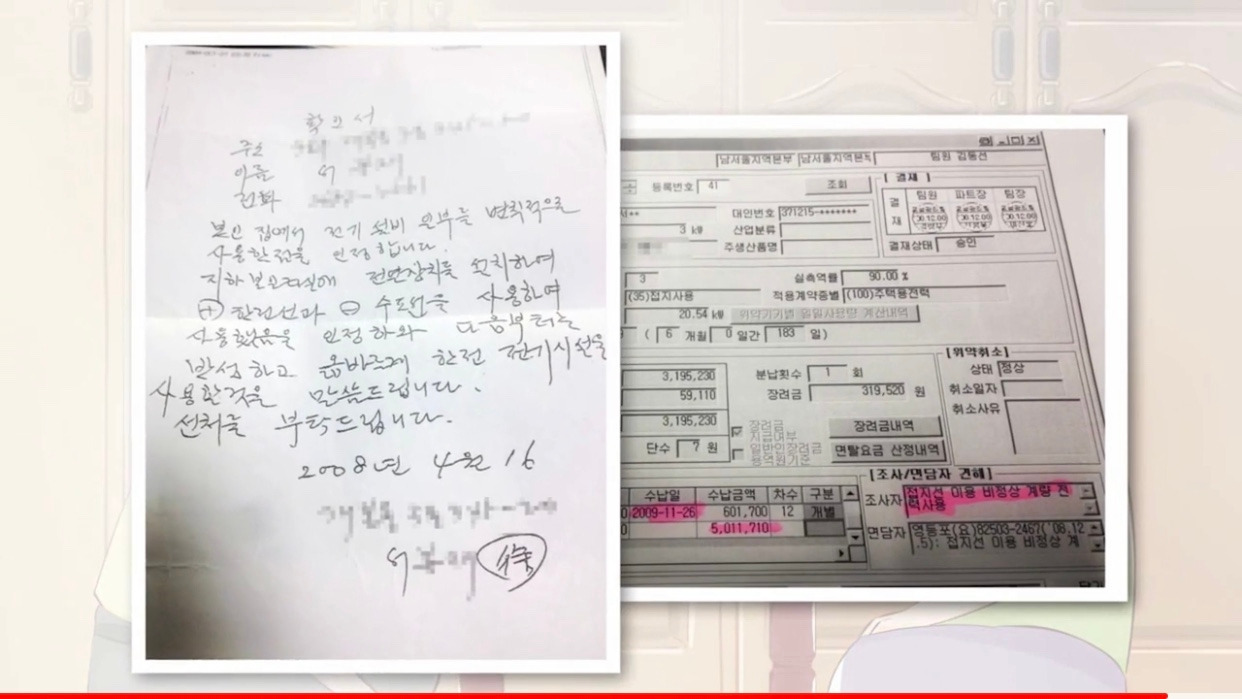 확인서
주소
이름 서
전화
본인 집에서 전기 설비 일부를 변칙적으로
사용한점을 인정합니다.
지하 보일러실에 전원장치를 설치하여
⊕ 한전선과 ⊖ 수도선을 사용하여
사용했음을 인정하와 다음부터는
반성하고 올바르게 한전 전기시선을
사용할것을 말씀드립니다.
선처를 부탁드립니다.
2008년 4월 16
서 徐
남서울지역본부 남서울지역본부 팀원 김동선
등록번호 41 조회
[ 결재 ]
결재 팀원 파트장 팀장
결재상태 승인
서**
3 kW
대안번호 371215-*******
산업분류
주생산품명
3 실측역률 90.00 %
(35)접지사용 적용계약종별 (100)주택용전력
20.54 kW 위약기기별 일일사용량 계산내역
( 6 개월 0 일간 183 일)
3,195,230 분납횟수 1 회
59,110 장려금 319,520 원
3,195,230 장려금 지급여부 장려금내역
단수 7 원 면탈요금 산정내역
[위약취소]
상태 정상
취소일자
취소사유
수납일 수납금액 차수 구분
0 2009-11-26 601,700 12 개별
0 5,011,710
[조사/면담자 견해]
조사자 접지선 이용 비정상 계량 전
력사용
면담자 영등포(요)82503-2467('08.12
.5): 접지선 이용 비정상 계